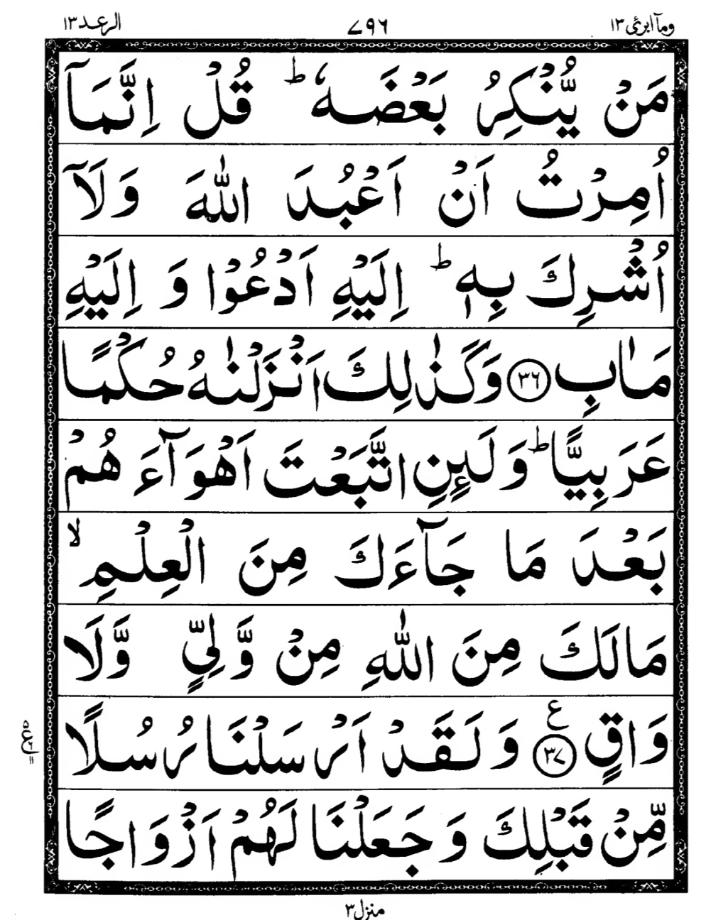 وماۤ ابرئ ١٣ ٧٩٦ الرعد ١٣
مَنْ يُّنْكِرُ بَعْضَهٗ ؕ قُلْ اِنَّمَاۤ
اُمِرْتُ اَنْ اَعْبُدَ اللّٰهَ وَلَاۤ
اُشْرِكَ بِهٖ ؕ اِلَيْهِ اَدْعُوْا وَ اِلَيْهِ
مَاٰبِ ﴿٣٦﴾ وَكَذٰلِكَ اَنْزَلْنٰهُ حُكْمًا
عَرَبِيًّا ؕ وَلَىِٕنِ اتَّبَعْتَ اَهْوَآءَ هُمْ
بَعْدَ مَا جَآءَكَ مِنَ الْعِلْمِ ۙ
مَالَكَ مِنَ اللّٰهِ مِنْ وَّلِيٍّ وَّلَا
وَاقٍ ﴿٣٧﴾ ع وَلَقَدْ اَرْسَلْنَا رُسُلًا
مِّنْ قَبْلِكَ وَجَعَلْنَا لَهُمْ اَزْوَاجًا
منزل ٣